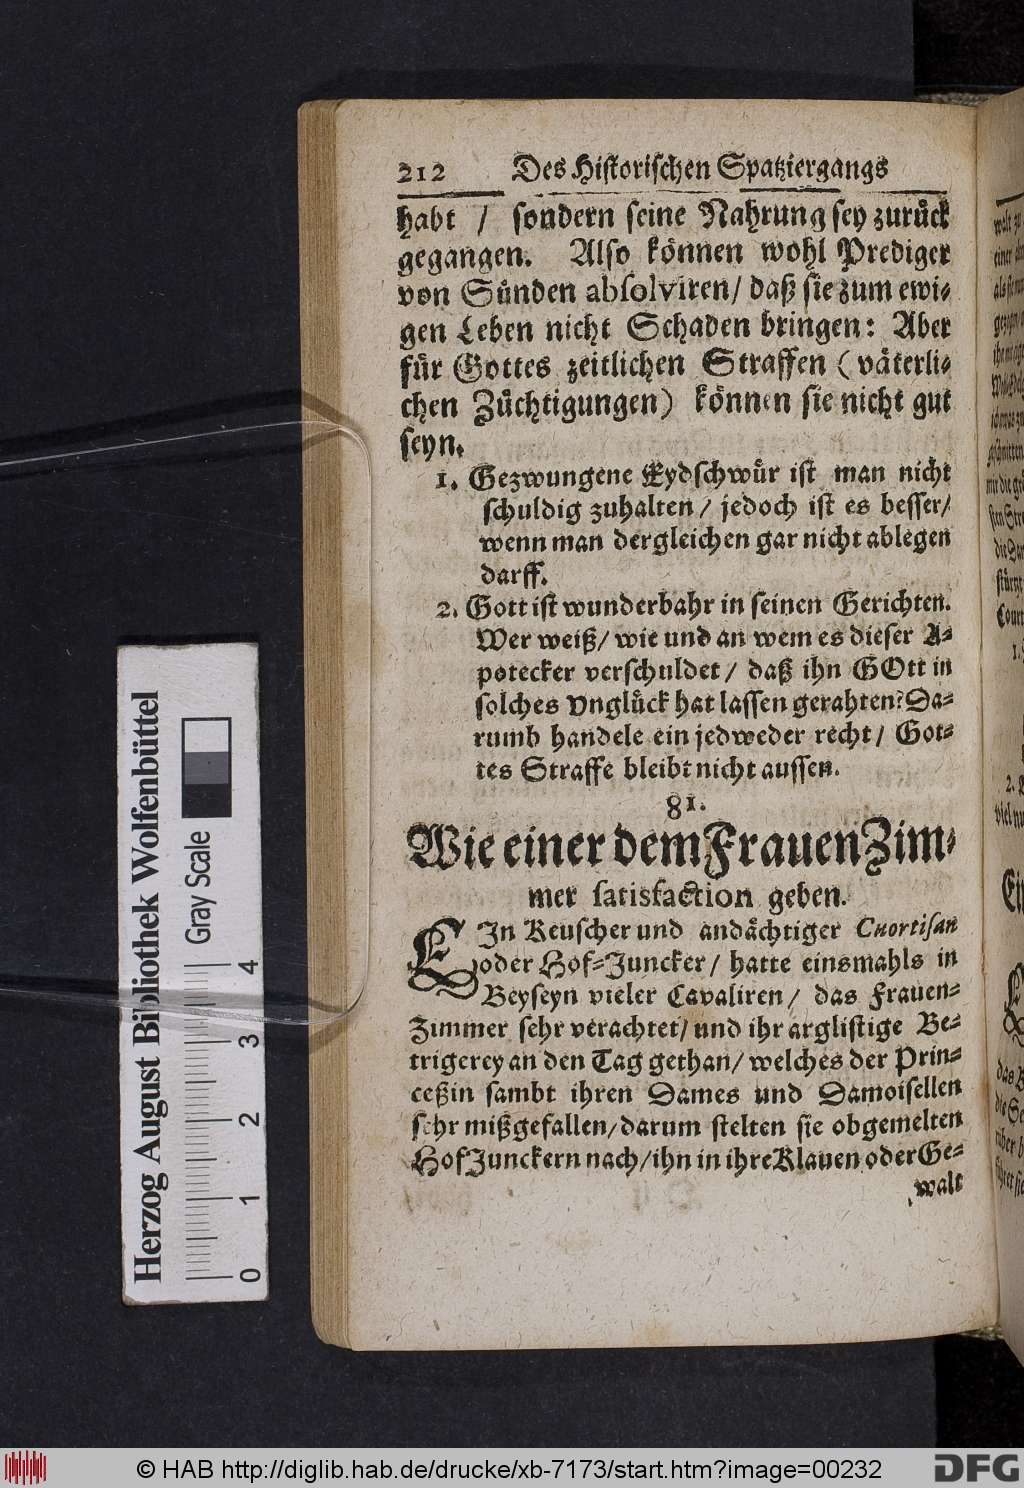 212 Des Historischen Spatziergangs
habt / sondern seine Nahrung sey zurück
gegangen. Also können wohl Prediger
von Sünden absolviren / daß sie zum ewi-
gen Leben nicht Schaden bringen: Aber
für Gottes zeitlichen Straffen (väterli-
chen Züchtigungen) können sie nicht gut
seyn.
1. Gezwungene Eydschwür ist man nicht
schuldig zuhalten / jedoch ist es besser /
wenn man dergleichen gar nicht ablegen
darff.
2. Gott ist wunderbahr in seinen Gerichten.
Wer weiß / wie und an wem es dieser A-
potecker verschuldet / daß ihn GOtt in
solches Vnglück hat lassen gerahten? Da-
rumb handele ein jedweder recht / Got-
tes Straffe bleibt nicht aussen.
81.
Wie einer dem Frauen Zim-
mer satisfaction geben.
EIn Keuscher und andächtiger Cuortisan
oder Hof-Juncker / hatte einsmahls in
Beyseyn vieler Cavaliren / das Frauen-
Zimmer sehr verachtet / und ihr arglistige Be-
trigerey an den Tag gethan / welches der Prin-
ceßin sambt ihren Dames und Damoisellen
sehr mißgefallen / darum stelten sie obgemelten
Hof Junckern nach / ihn in ihre Klauen oder Ge-
walt
Herzog August Bibliothek Wolfenbüttel
Gray Scale
0 1 2 3 4
© HAB http://diglib.hab.de/drucke/xb-7173/start.htm?image=00232
DFG